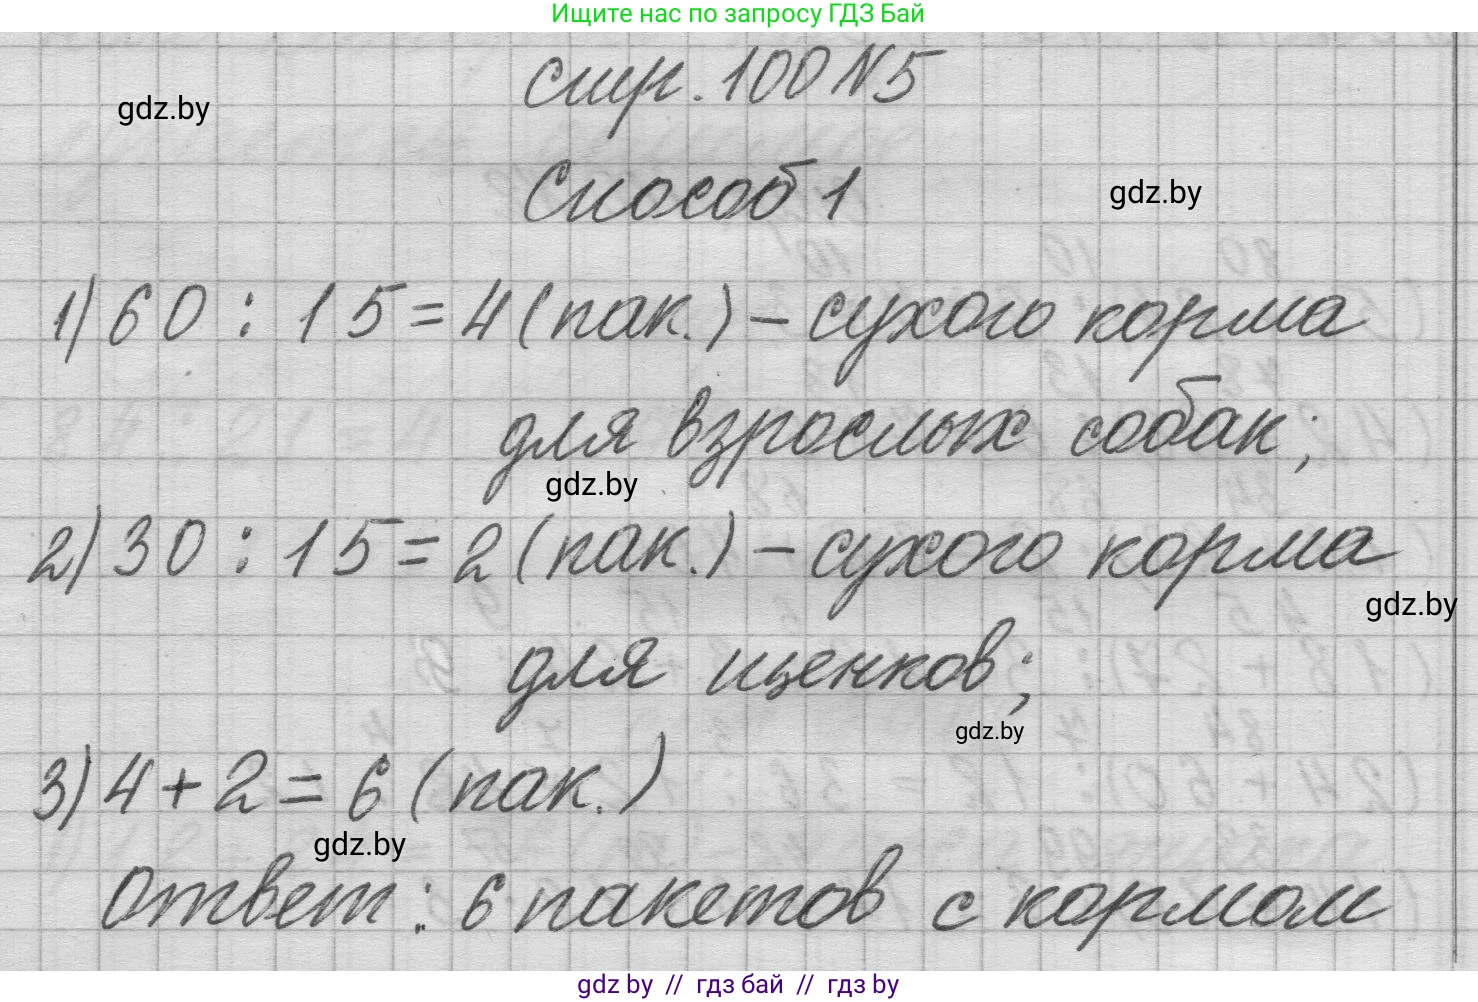 Ищите нас по запросу ГДЗ Бай
стр. 100 N5
gdz.by
Способ 1
gdz.by
1) 60 : 15 = 4 (пак.) – сухого корма
для взрослых собак;
gdz.by
2) 30 : 15 = 2 (пак.) – сухого корма
gdz.by
для щенков;
gdz.by
3) 4 + 2 = 6 (пак.)
gdz.by
Ответ: 6 пакетов с кормом
gdz by // гдз бай // гдз by